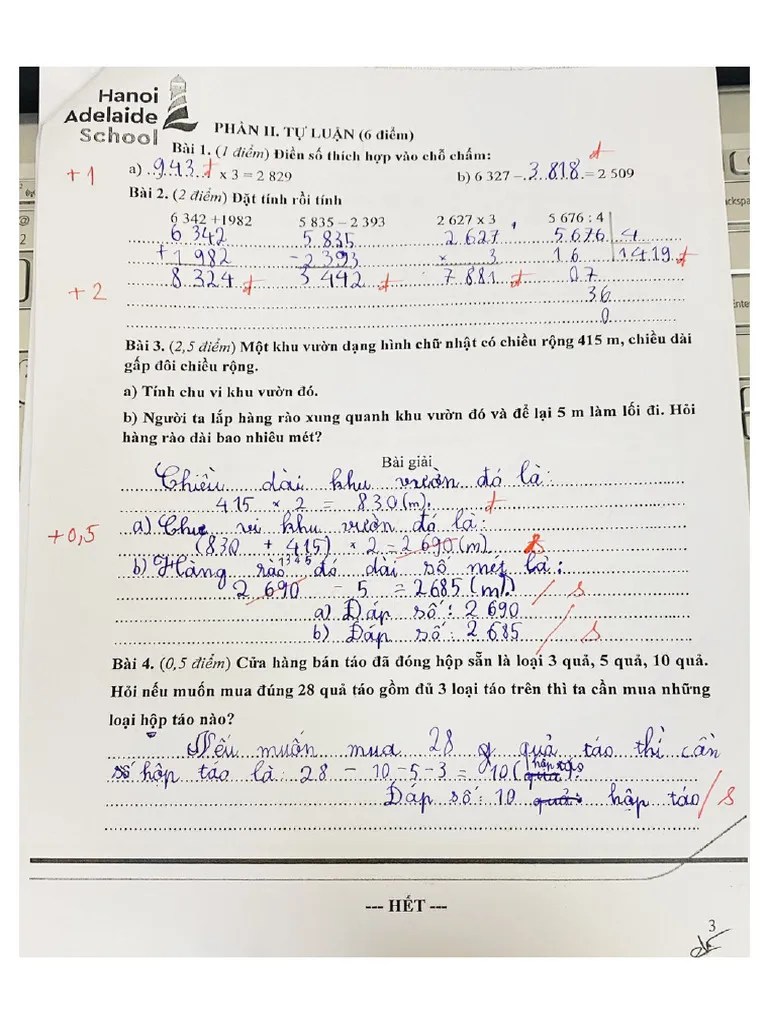 Hanoi
Adelaide
School
PHẦN II. TỰ LUẬN (6 điểm)
Bài 1. (1 điểm) Điền số thích hợp vào chỗ chấm:
+1
a) 943 đ x 3 = 2 829 b) 6 327 – 3 818 đ = 2 509
Bài 2. (2 điểm) Đặt tính rồi tính
6 342 +1982 5 835 – 2 393 2 627 x 3 5 676 : 4
6 342 5 835 2 627 5 676 4
+ 1 982 - 2 393 x 3 1 6 1419 đ
8 324 đ 3 442 đ 7 881 đ 0 7
+2
36
0
Bài 3. (2,5 điểm) Một khu vườn dạng hình chữ nhật có chiều rộng 415 m, chiều dài
gấp đôi chiều rộng.
a) Tính chu vi khu vườn đó.
b) Người ta lắp hàng rào xung quanh khu vườn đó và để lại 5 m làm lối đi. Hỏi
hàng rào dài bao nhiêu mét?
Bài giải
Chiều dài khu vườn đó là:
415 x 2 = 830 (m). đ
+0,5
a) Chu vi khu vườn đó là:
(830 + 415) x 2 = 2 690 (m)
b) Hàng rào đó dài số mét là:
2 690 - 5 = 2 685 (m) s
a) Đáp số: 2 690
b) Đáp số: 2 685 s
Bài 4. (0,5 điểm) Cửa hàng bán táo đã đóng hộp sẵn là loại 3 quả, 5 quả, 10 quả.
Hỏi nếu muốn mua đúng 28 quả táo gồm đủ 3 loại táo trên thì ta cần mua những
loại hộp táo nào?
Nếu muốn mua 28 quả táo thì cần
số hộp táo là: 28 - 10 - 5 - 3 = 10 (hộp táo)
Đáp số: 10 hộp táo s
--- HẾT ---
3